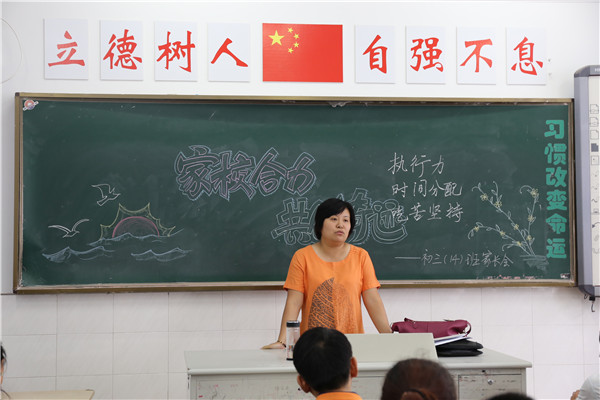 立德树人 自强不息
家校合力
共
执行力
时间分配
吃苦坚持
——初三(14)班家长会
习惯改变命运